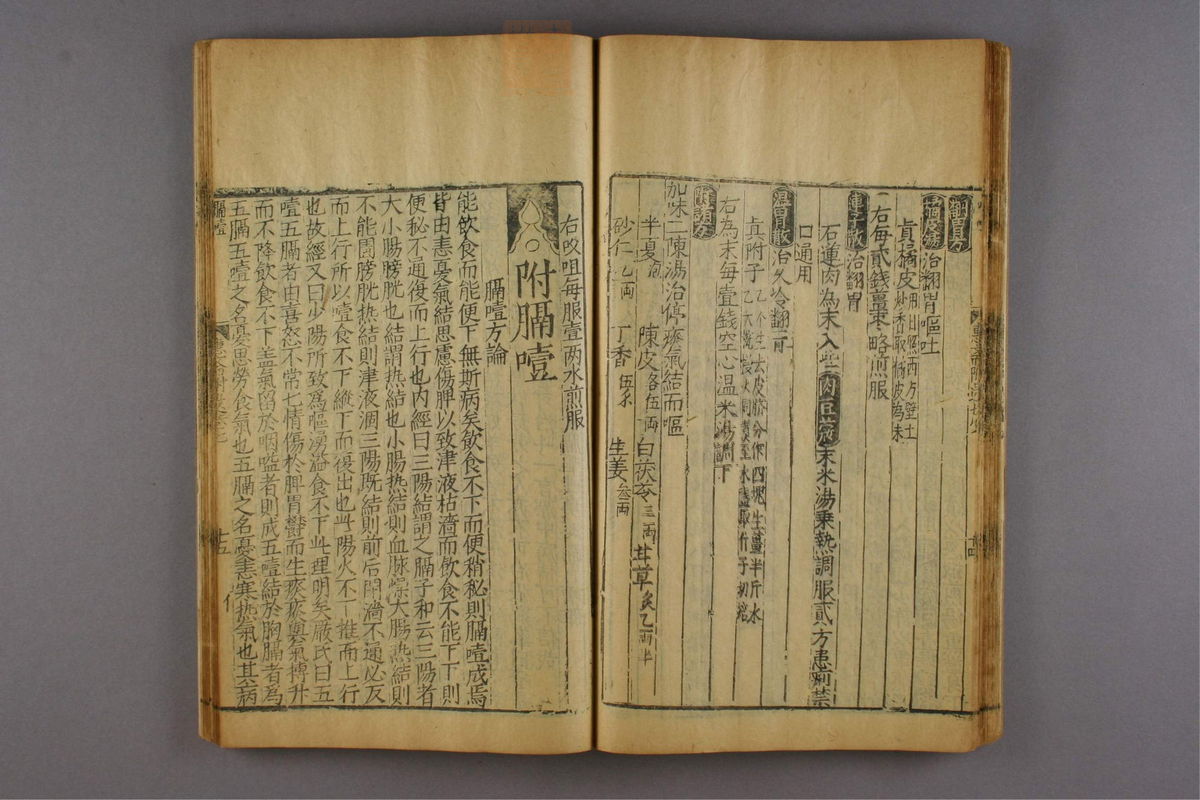 翻胃方
橘皮湯 治翻胃嘔吐
眞橘皮 用日照西方壁土
炒香取橘皮為末
右每貳錢薑枣略煎服
蓮子散 治翻胃
石蓮肉為末入些肉豆蔻末米湯乗熱調服貳方患痢禁
口通用
温胃散 治久冷翻胃
眞附子 乙个生去皮臍分作四塊生薑半斤水
右為末每壹錢空心温米湯調下
附諸方
加味二陳湯治停痰氣結而嘔
半夏 陳皮各伍両 白茯苓三両 甘草炙乙両半
砂仁乙両 丁香伍分 生姜叁両
右㕮咀每服壹两水煎服
附膈噎
膈噎方論
能飲食而能便下無斯病矣飲食不下而便稍秘則膈噎成焉
皆由恚憂氣結思慮傷脾以致津液枯濇而飲食不能下下則
便秘不通復而上行也内經曰三陽結謂之膈子和云三陽者
大小腸膀胱也結謂热結也小腸热結則血脉燥大腸热結則
不能圊膀胱热結則津液涸三陽既結則前后閉濇不通必反
而上行所以噎食不下縱下而復出也此陽火不下推而上行
也故經又曰少陽所致為嘔湧溢食不下此理明矣嚴氏曰五
噎五膈者由喜怒不常七情傷於脾胃鬱而生痰痰與氣摶升
而不降飲食不下盖氣留於咽嗌者則成五噎結於胸膈者為
五膈五噎之名憂思勞食氣也五膈之名憂恚寒热氣也其病
膈噎
十五